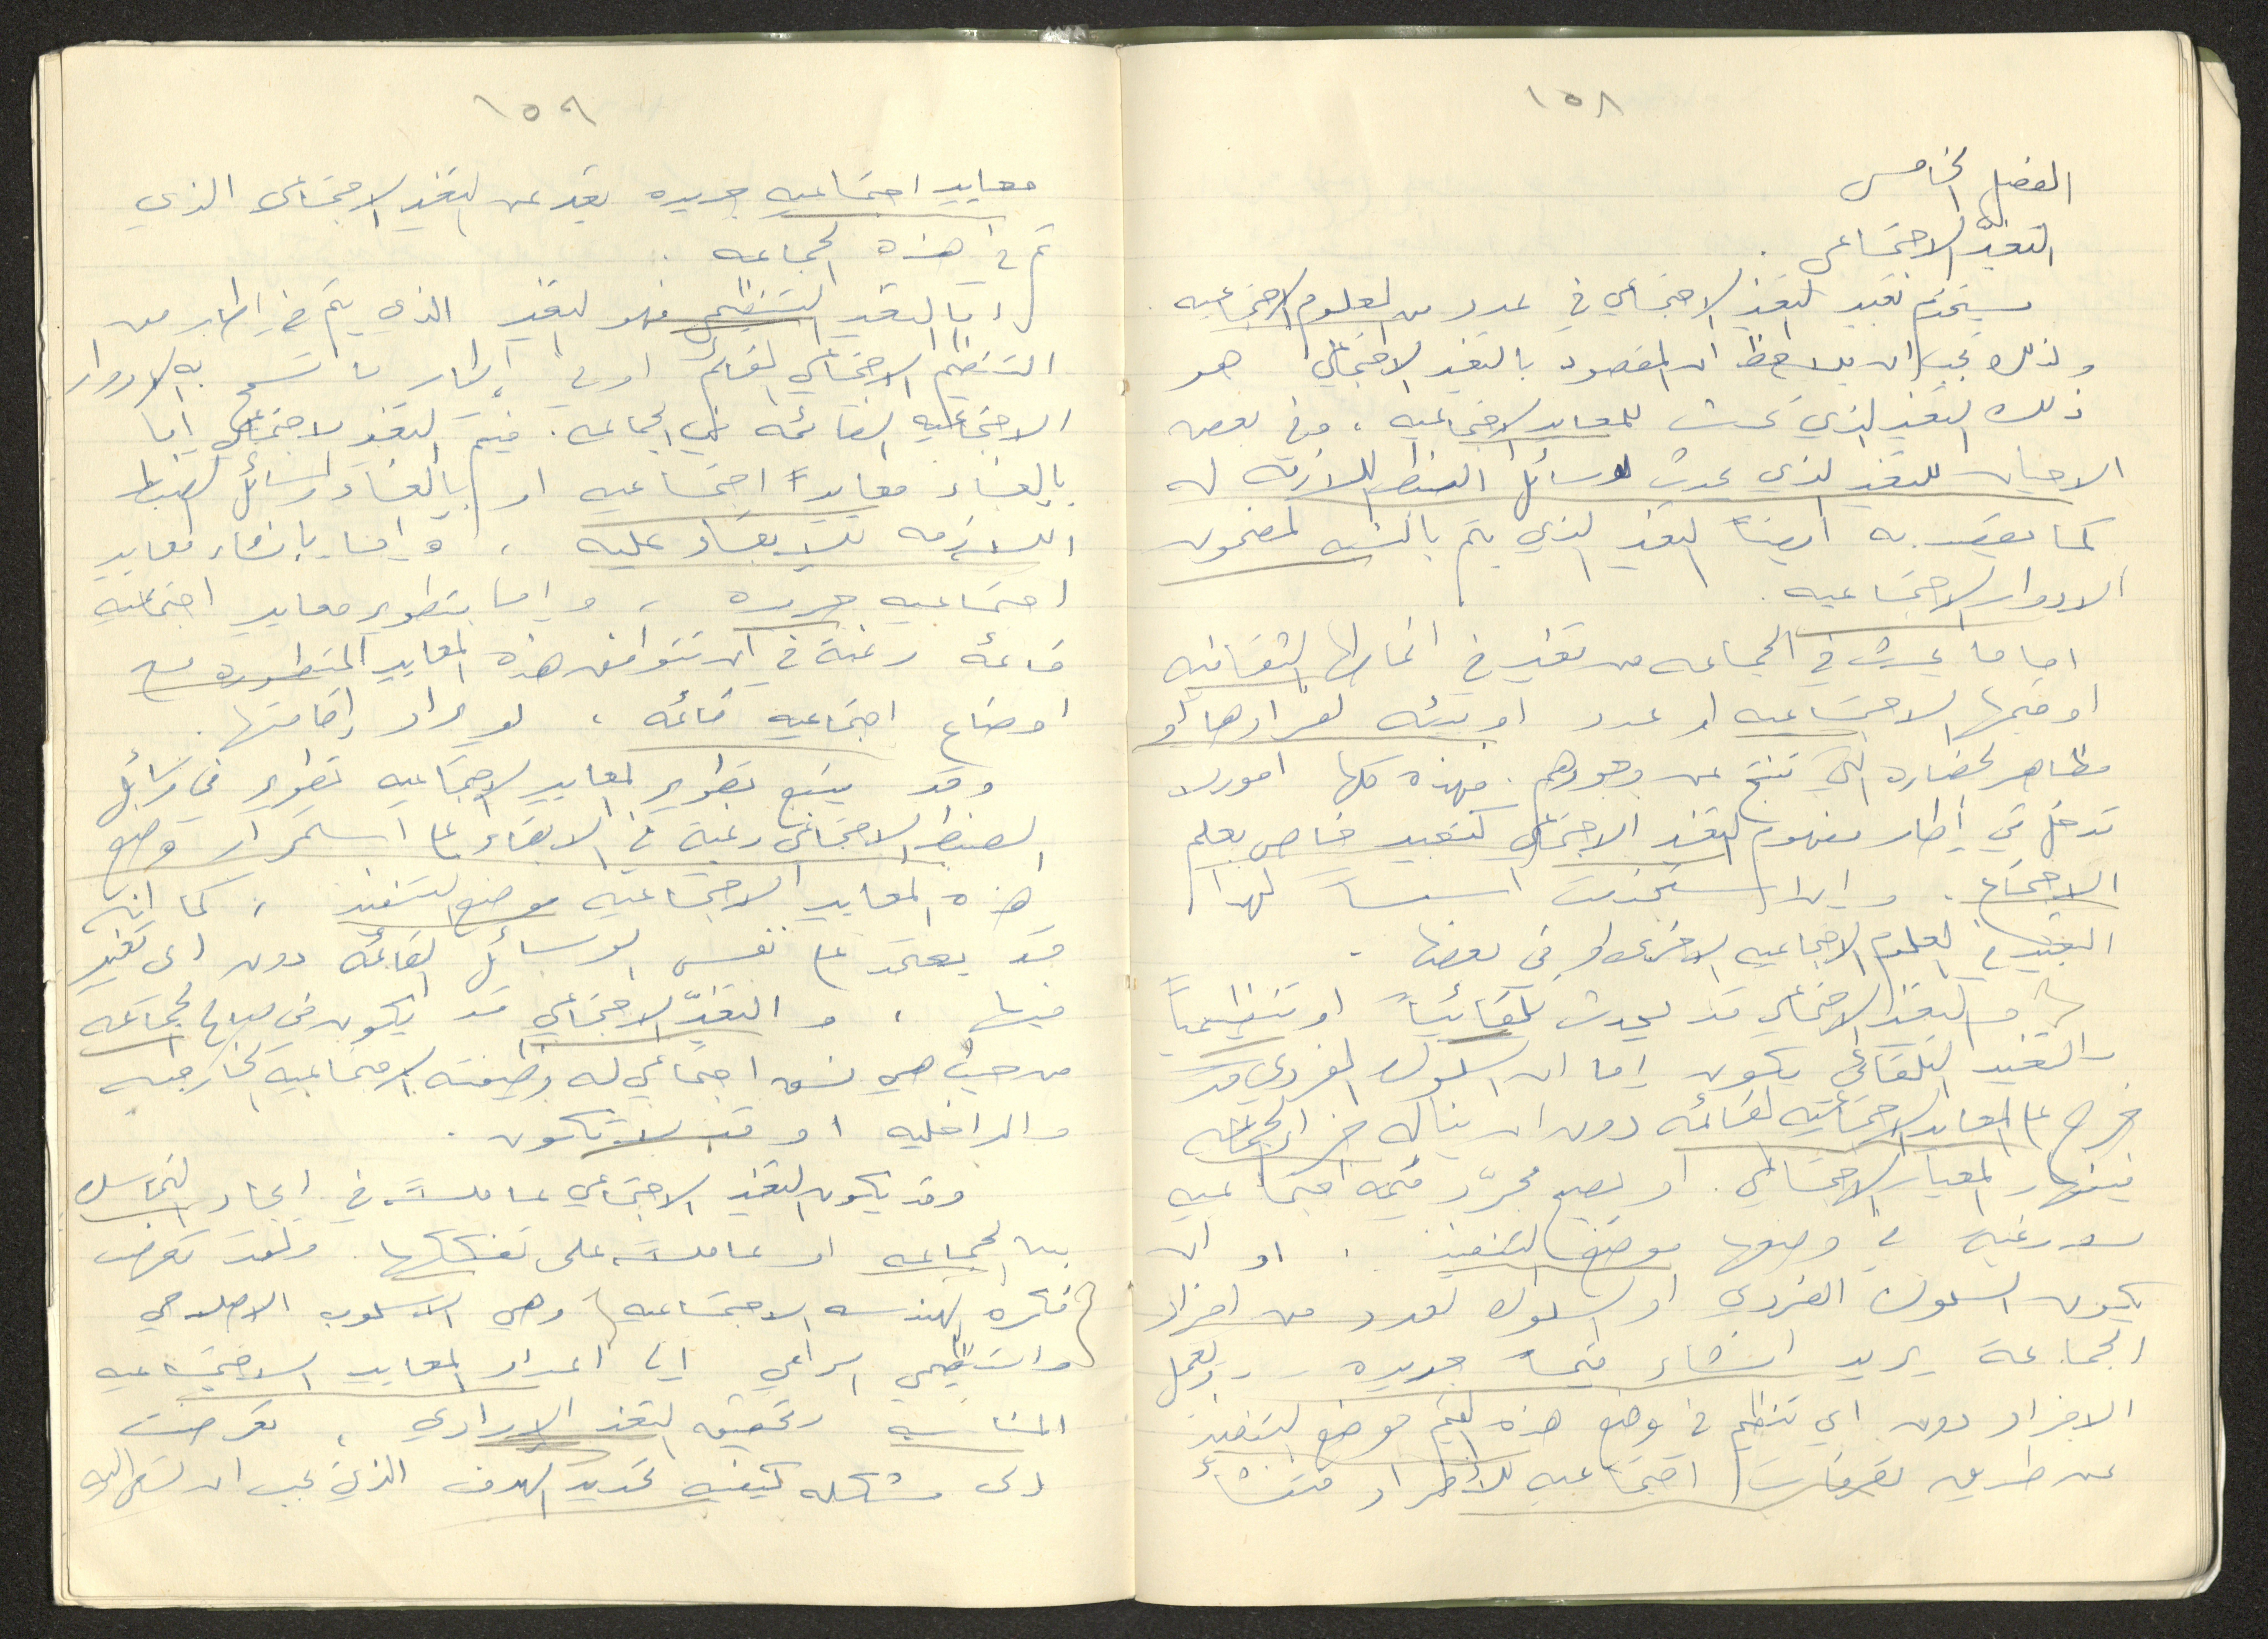 ١٥٨
الفصل الخامس
التغيّر الاجتماعي .
يستخدم تعبير التغير الاجتماعي في عدد من العلوم الاجتماعيه .
ولذلك يجب ان يلاحظ ان المقصود بالتغير الاجتماعي هو
ذلك التغير الذي يحدث للمعايير الاجتماعيه ، وفي بعض
الاحيان للتغير الذي يحدث لوسائل الضبط اللازمه له
كما يقصد به ايضاً التغير الذي يتم بالنسبه لمضمون
الادوار الاجتماعيه .
اما ما يحدث في الجماعه من تغير في انماطها الثقافيه
او قيمها الاجتماعيه او عدد او بيئه افرادها أو
مظاهر الحضاره التي تنتج عن وجودهم . فهذه كلها امور لا
تدخل في إطار مفهوم التغير الاجتماعي كتعبير خاص بعلم
الاجتماع . وان استخدمت اسساً لهذا
التغير في العلوم الاجتماعيه الاخرى او في بعضها .
والتغير الاجتماعي قد يحدث تلقائياً او تنظيمياً
والتغير التلقائي يكون إما ان السلوك الفردي قد
خرج على المعايير الاجتماعيه القائمه دون ان يناله جزاء الجماعه
فينهار المعيار الاجتماعي . او يصبح مجرّد قيمه اجتماعيه
بدون رغبه في وضعها موضع التنفيذ . او ان
يكون السلوك الفردي او السلوك لعدد من افراد
الجماعة يريد انشاء قيماً جديده .. ويعمل
الافراد دون اي تنظيم في وضع هذه القيم موضع التنفيذ
عن طريق تصرفات اجتماعيه للأفراد فتنشأ
١٥٩
معايير اجتماعيه جديده يعبر عن التغير الاجتماعي الذي
تم في هذه الجماعه .
أما التغير التنظيمي فهو التغير الذي يتم في إطار من
التنظيم الاجتماعي القائم او في إطار ما تسمح به الادوار
الاجتماعيه القائمه في الجماعه . فيتم التغير الاجتماعي إما
بإلغاء معايير اجتماعيه او بإلغاء وسائل الضبط
اللازمه للابقاء عليه ، وإما بإنشاء معايير
اجتماعيه جديده ، وإما بتطوير معايير اجتماعيه
قائمه رغبة في ان تتوافق هذه المعايير المتطوره مع
اوضاع اجتماعيه قائمه ، او يراد إقامتها .
وقد يتبع تطوير المعايير الاجتماعيه تطوير في وسائل
الضبط الاجتماعي رغبة في الابقاء على استمرار وضع
هذه المعايير الاجتماعيه موضع التنفيذ ، كما انه
قد يعتمد على نفس الوسائل القائمه دون اى تغير
فيها ، والتغيّر الاجتماعي قد يكون في صالح الجماعه
من حيث هي نسق اجتماعي له وظيفته الاجتماعيه الخارجيه
والداخليه او قد لا تكون .
وقد يكون التغير الاجتماعي عاملاً في ايجاد التماسك
بين الجماعه او عاملاً على تفككها . ولقد تعرضت
فكره الهندسه الاجتماعيه وهي الاسلوب الاصلاحي
والتنظيمي الراعي الى اعداد المعايير الاجتماعيه
المناسبه وتحقيق التغير الإرادي ، تعرضت
الى مشكله كيفيه تحديد الهدف الذي يجب ان تسعى اليه